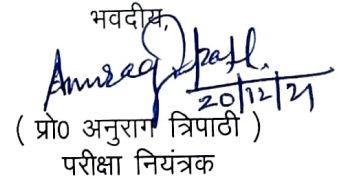 भवदीय,
Anurag Tripathi
20/12/21
( प्रो0 अनुराग त्रिपाठी )
परीक्षा नियंत्रक